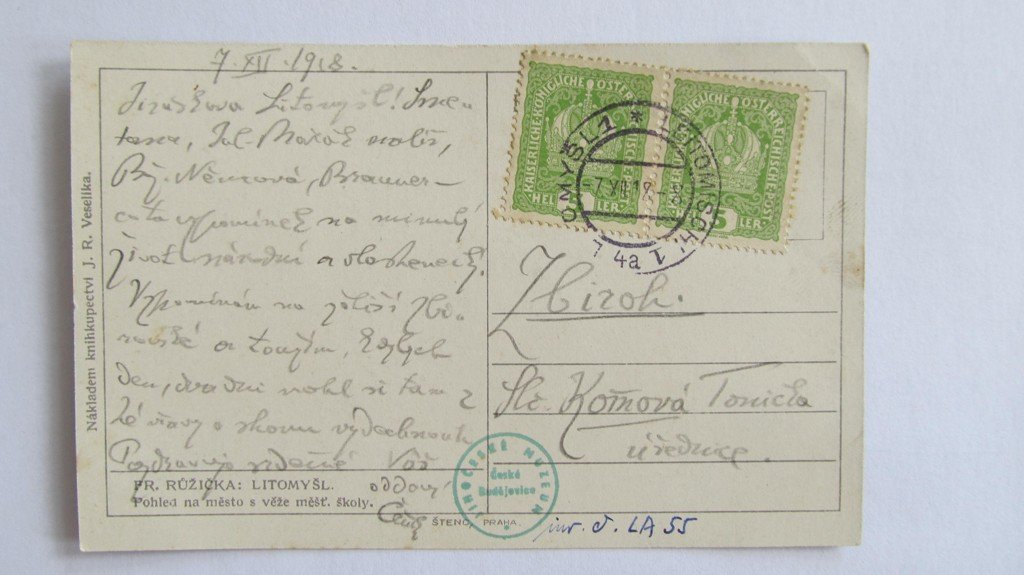 7. XII. 1918.
Jiráskova Litomyšl! Sme-
tana,
Bož. Němcová, Brauner –
vzpomínek na minulý
život národní a vlastenecký.
Vzpomínám na zátiší Zbi-
rožské a toužím,
den, dva dni mohl si tam z
té vřavy a shonu vydechnouti
Pozdravuje srdečně Váš
oddaný
Nákladem knihkupectví J. R. Veselíka.
FR. RŮŽIČKA: LITOMYŠL.
Pohled na město s věže měšť. školy.
ŠTENC, PRAHA.
KAISERLICHE KÖNIGLICHE ÖSTERREICHISCHE POST
5 HELLER
KAISERLICHE KÖNIGLICHE ÖSTERREICHISCHE POST
5 HELLER
LITOMYŠL 1 * LEITOMISCHL 1
7 XII 18
4a
Zbiroh.
Slč. Kořnová Tonička
úřednice.
JIHOČESKÉ MUZEUM
České
Budějovice
inv. č. LA 55